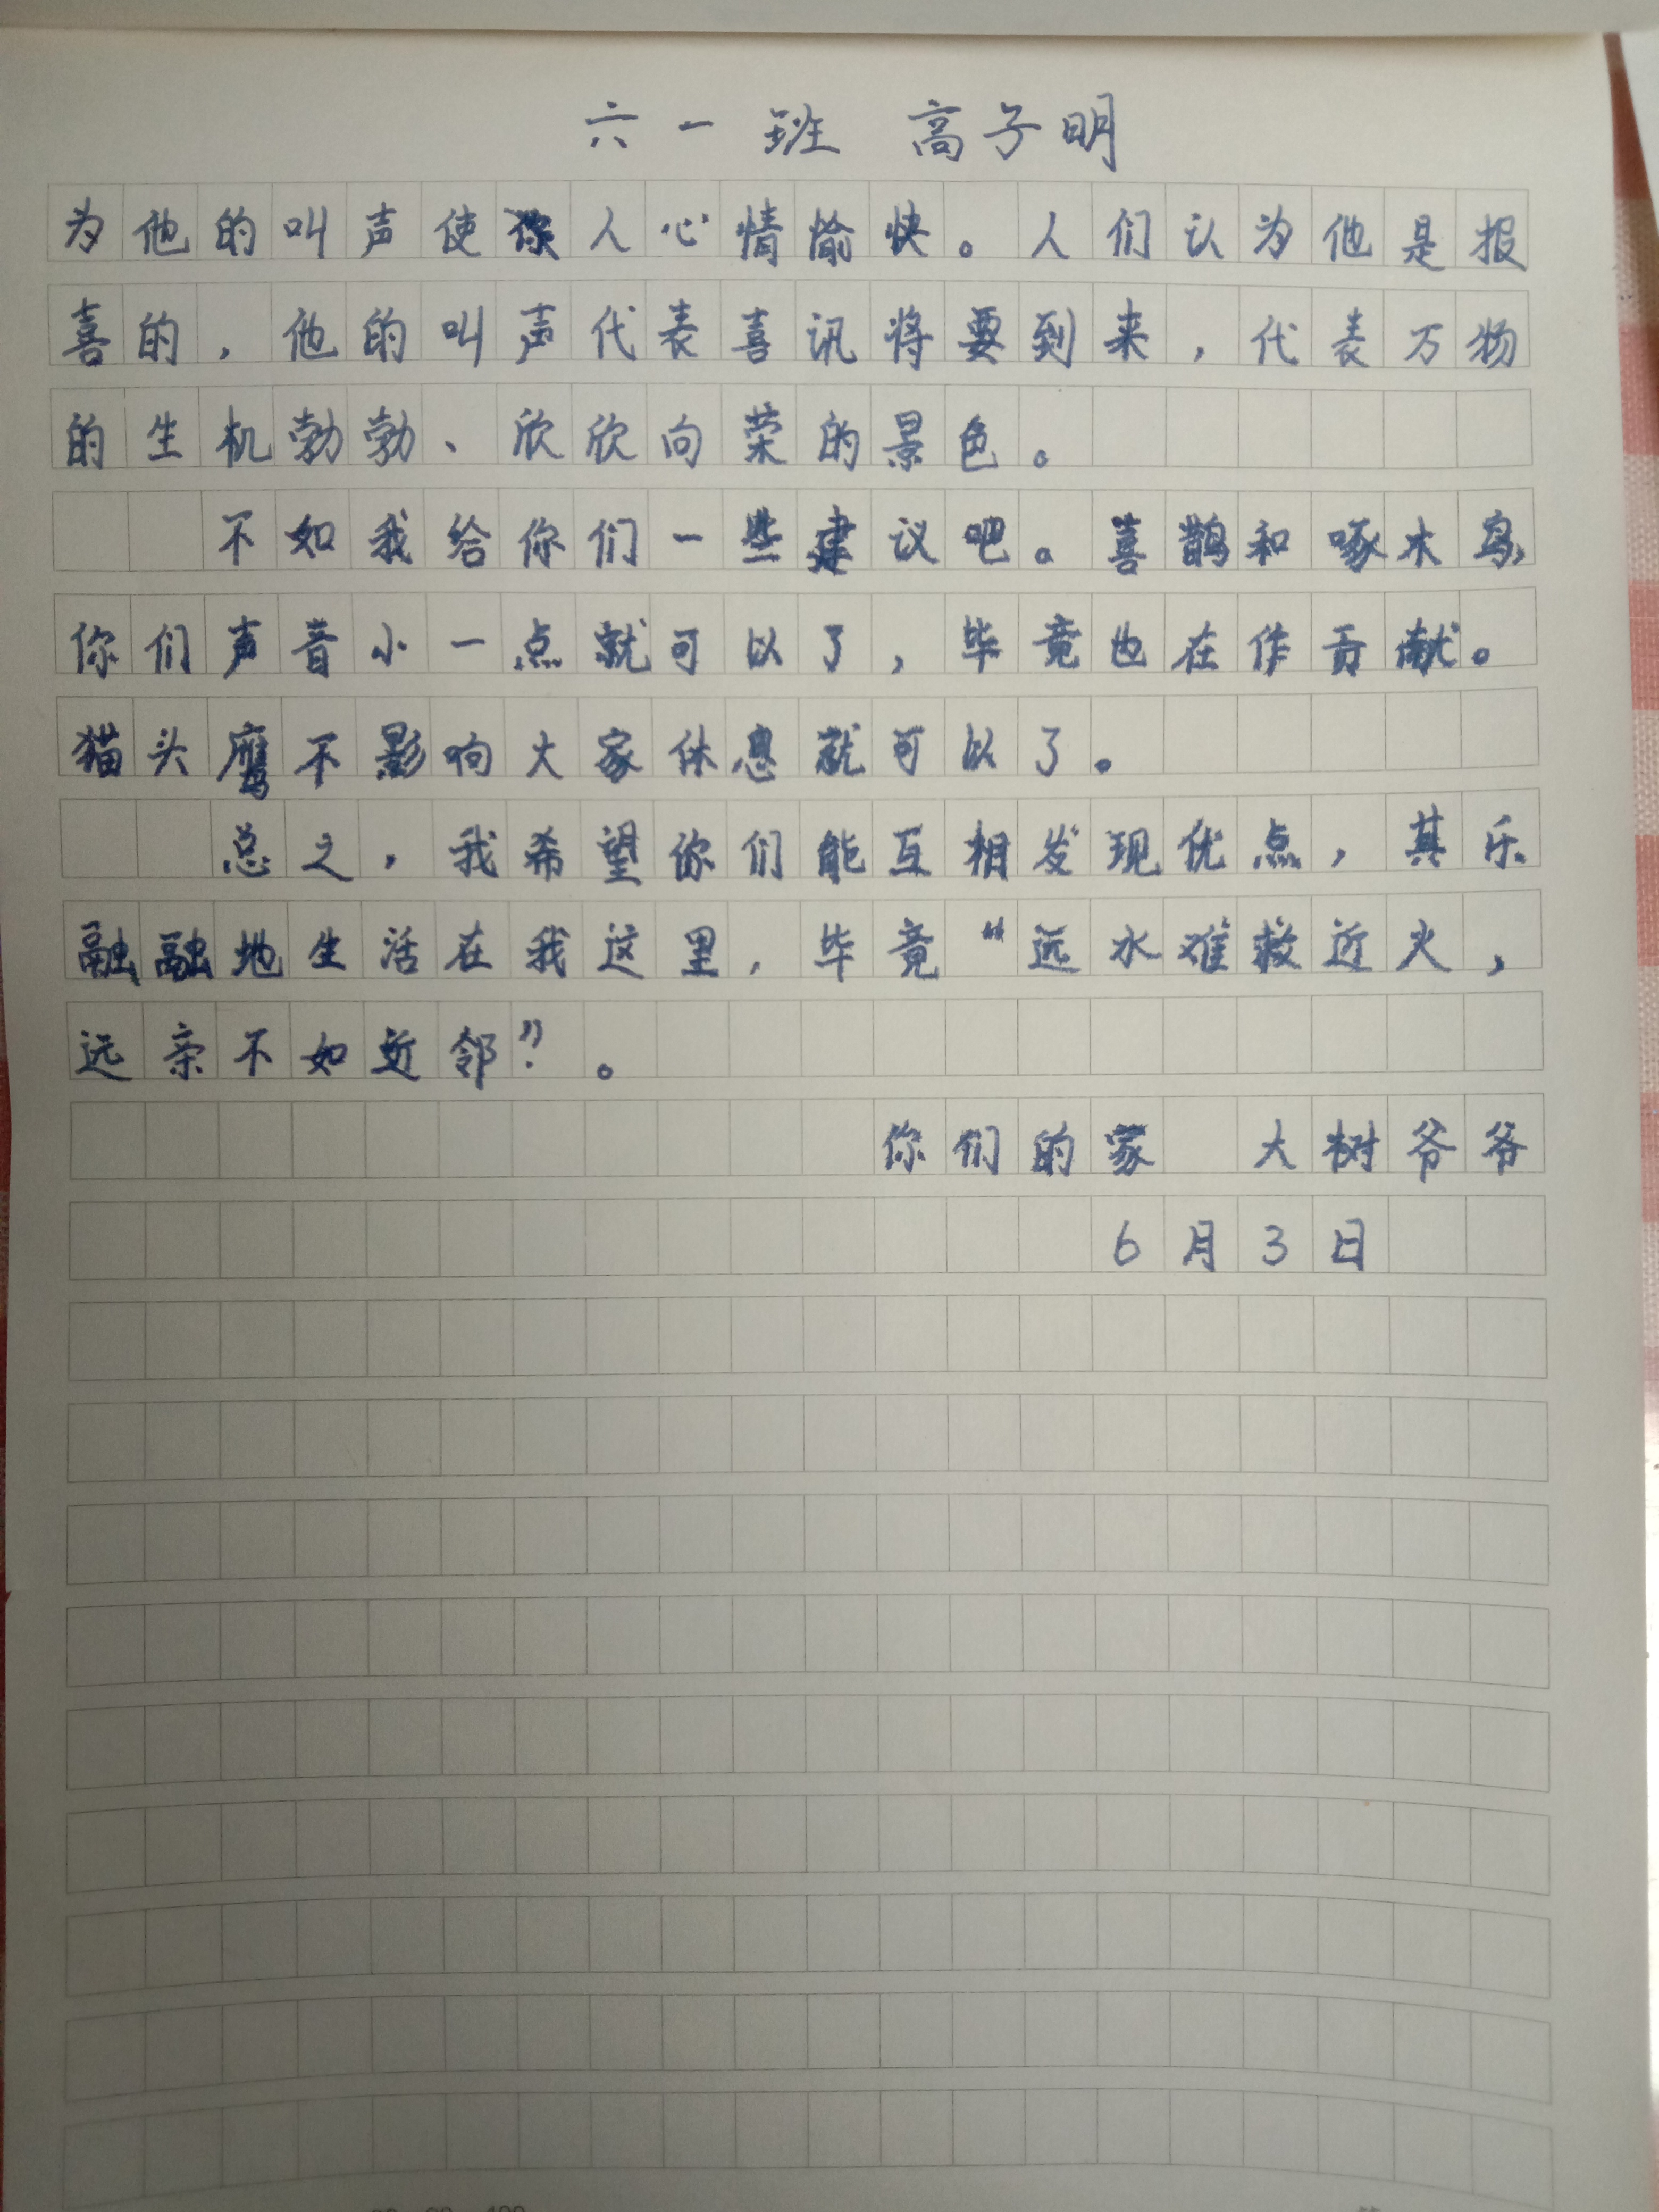 六一班 高子明
为他的叫声使人心情愉快。人们认为他是报
喜的，他的叫声代表喜讯将要到来，代表万物
的生机勃勃、欣欣向荣的景色。
不如我给你们一些建议吧。喜鹊和啄木鸟，
你们声音小一点就可以了，毕竟也在作贡献。
猫头鹰不影响大家休息就可以了。
总之，我希望你们能互相发现优点，其乐
融融地生活在我这里，毕竟“远水难救近火，
远亲不如近邻”。
你们的家 大树爷爷
6月3日